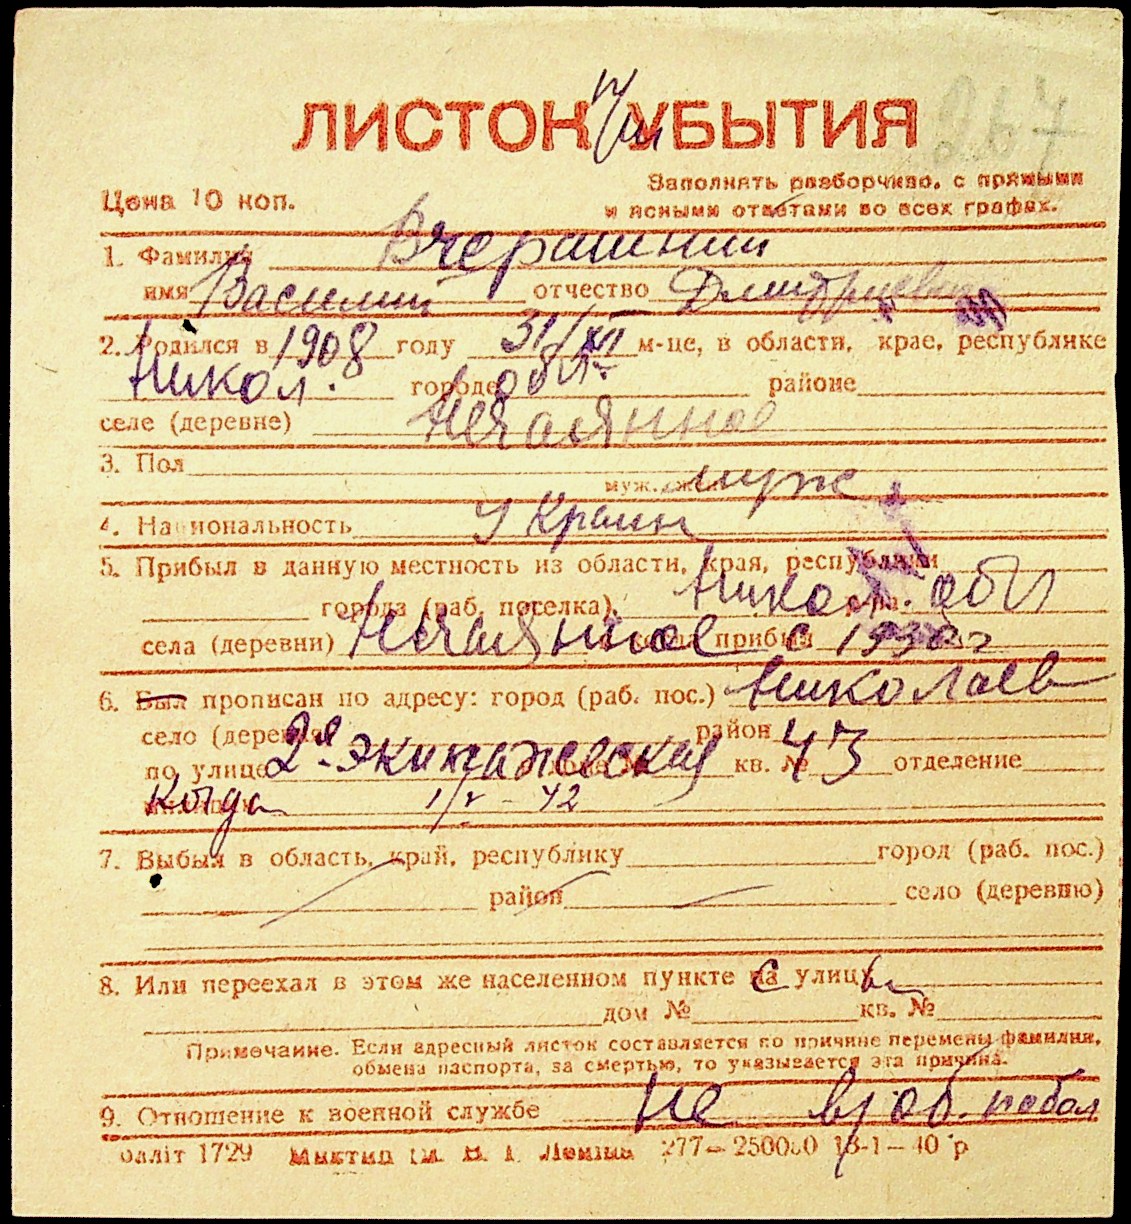 ЛИСТОК УБЫТИЯ
267
Цена 10 коп.
Заполнять разборчиво, с прямыми
и ясными ответами во всех графах.
1. Фамилия Вчерашний
имя Василий отчество Дмитриевич
2. Родился в 1908 году 31/XII м-це, в области, крае, республике
Никол. городе обл. районе
селе (деревне) Нечаянное
3. Пол муж
муж. жен.
4. Национальность Украин
5. Прибыл в данную местность из области, края, республики
города (раб. поселка) Никол. обл
села (деревни) Нечаянное прибыл с 1930 г
6. Был прописан по адресу: город (раб. пос.) Николаев
село (деревня) район
по улице 2я Экипажеская кв. № 43 отделение
Когда 1/V - 42
7. Выбыл в область, край, республику город (раб. пос.)
район село (деревню)
8. Или переехал в этом же населенном пункте с улицы
дом № кв. №
Примечание. Если адресный листок составляется по причине перемены фамилии,
обмена паспорта, за смертью, то указывается эта причина.
9. Отношение к военной службе Не в/об.
олліт 1729 277—250000 18-1—40 р